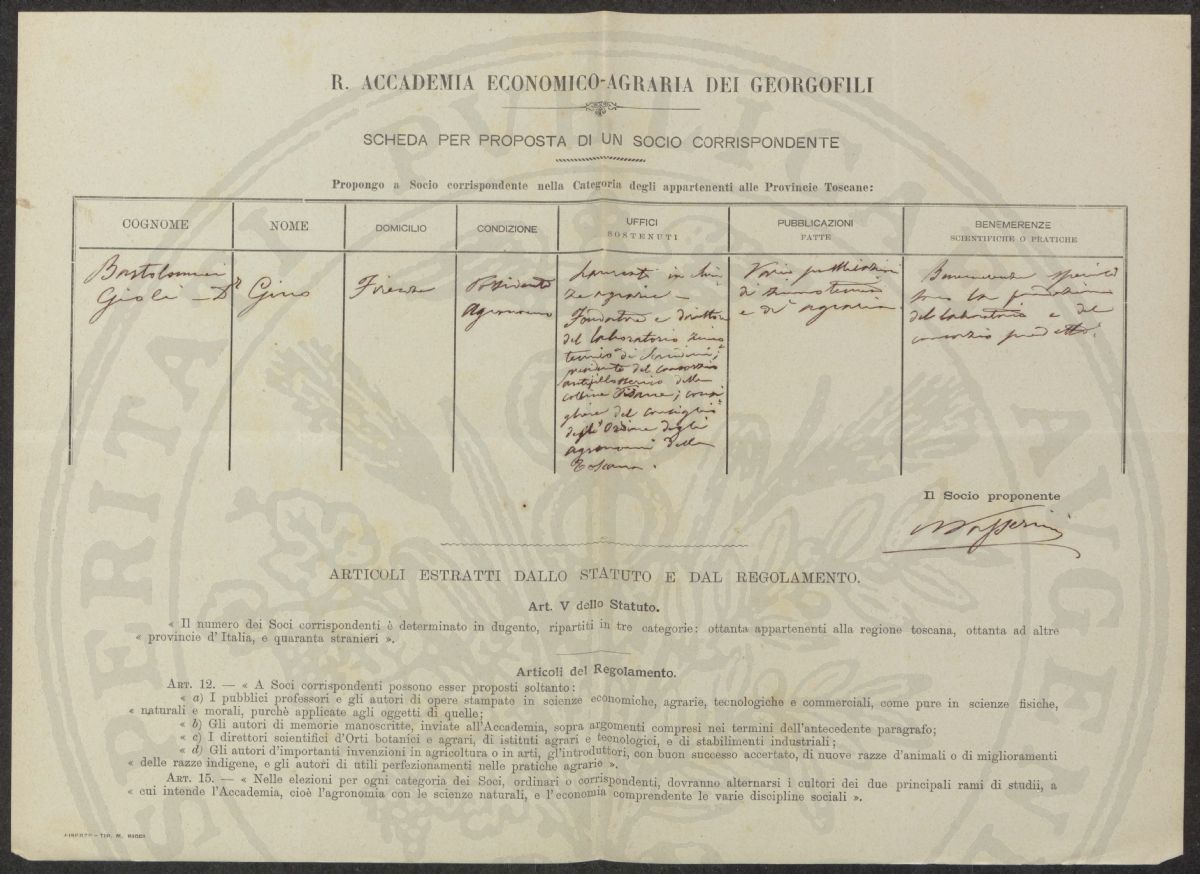 R. ACCADEMIA ECONOMICO-AGRARIA DEI GEORGOFILI
SCHEDA PER PROPOSTA DI UN SOCIO CORRISPONDENTE
Propongo a Socio corrispondente nella Categoria degli appartenenti alle Provincie Toscane:
COGNOME
Bartolomei
Gioli - Dr
NOME
Gino
DOMICILIO
Firenze
CONDIZIONE
Possidente
Agronomo
UFFICI
SOSTENUTI
Laureato in
ze agrarie -
Fondatore e direttore
del Laboratorio zimo
tecnico di
presidente del consorzio
antifillosserico delle
colline Pisane; consi
gliere del consiglio
degli Ordine degli
agronomi della
Toscana.
PUBBLICAZIONI
FATTE
Varie pubblicazioni
di zimotecnia
e di agraria
BENEMERENZE
SCIENTIFICHE O PRATICHE
Benemerenze
sono la fondazione
del Laboratorio e del
consorzio predetto.
Il Socio proponente
Passerini
ARTICOLI ESTRATTI DALLO STATUTO E DAL REGOLAMENTO.
Art. V dello Statuto.
« Il numero dei Soci corrispondenti è determinato in dugento, ripartiti in tre categorie: ottanta appartenenti alla regione toscana, ottanta ad altre
« provincie d'Italia, e quaranta stranieri ».
Articoli del Regolamento.
ART. 12. — « A Soci corrispondenti possono esser proposti soltanto:
« a) I pubblici professori e gli autori di opere stampate in scienze economiche, agrarie, tecnologiche e commerciali, come pure in scienze fisiche,
« naturali e morali, purchè applicate agli oggetti di quelle;
« b) Gli autori di memorie manoscritte, inviate all'Accademia, sopra argomenti compresi nei termini dell'antecedente paragrafo;
« c) I direttori scientifici d'Orti botanici e agrari, di istituti agrari e tecnologici, e di stabilimenti industriali;
« d) Gli autori d'importanti invenzioni in agricoltura o in arti, gl'introduttori, con buon successo accertato, di nuove razze d'animali o di miglioramenti
« delle razze indigene, e gli autori di utili perfezionamenti nelle pratiche agrarie ».
ART. 15. — « Nelle elezioni per ogni categoria dei Soci, ordinari o corrispondenti, dovranno alternarsi i cultori dei due principali rami di studii, a
« cui intende l'Accademia, cioè l'agronomia con le scienze naturali, e l'economia comprendente le varie discipline sociali ».
FIRENZE – TIP. M. RICCI
PROSPERITA PUBLICA AVGENDAE